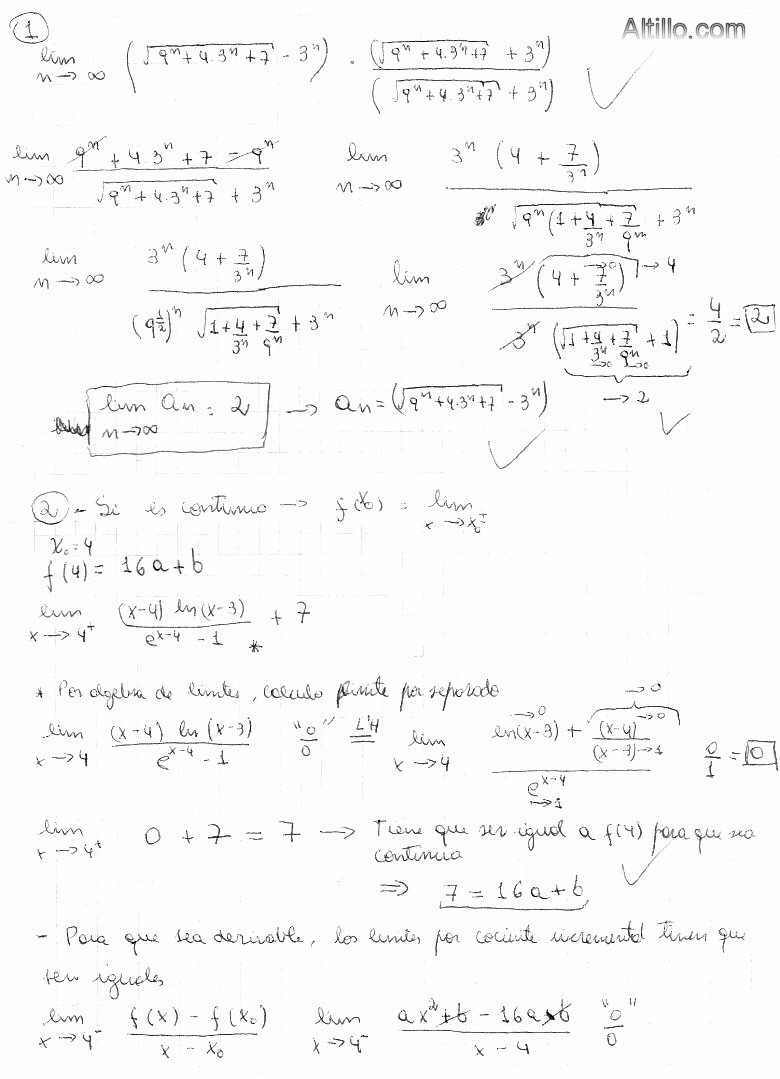 Altillo.com
①
lim n→∞ (√(9ⁿ+4.3ⁿ+7) - 3ⁿ) . (√(9ⁿ+4.3ⁿ+7) + 3ⁿ) / (√(9ⁿ+4.3ⁿ+7) + 3ⁿ) ✓
lim n→∞ (9ⁿ + 4 3ⁿ + 7 - 9ⁿ) / (√(9ⁿ+4.3ⁿ+7) + 3ⁿ) lim n→∞ 3ⁿ (4 + 7/3ⁿ) / (√(9ⁿ(1+4/3ⁿ+7/9ⁿ)) + 3ⁿ)
lim n→∞ 3ⁿ (4 + 7/3ⁿ) / ((9^½)ⁿ √(1+4/3ⁿ+7/9ⁿ) + 3ⁿ) lim n→∞ 3ⁿ (4 + 7/3ⁿ →0) →4 / 3ⁿ (√(1+4/3ⁿ →0 +7/9ⁿ →0) + 1) →2 = 4/2 = 2
lim n→∞ an = 2 → an = (√(9ⁿ+4.3ⁿ+7) - 3ⁿ) ✓ ✓
② - Si es continua → f(x₀) = lim x→x₀±
x₀=4
f(4) = 16a+b
lim x→4⁺ (x-4) ln(x-3) / (e^(x-4) - 1) * + 7
* Por algebra de limites, calculo limite por separado
lim x→4 (x-4) ln(x-3) / (e^(x-4) - 1) "0/0" L'H = lim x→4 (ln(x-3) →0 + (x-4) →0 / (x-3) →1 →0) / e^(x-4) →1 0/1 = 0
lim x→4⁺ 0 + 7 = 7 → Tiene que ser igual a f(4) para que sea
continua
⇒ 7 = 16a+b ✓
- Para que sea derivable, los limites por cociente incremental tienen que
ser iguales
lim x→4⁻ (f(x) - f(x₀)) / (x - x₀) lim x→4⁻ (ax²+b - 16a-b) / (x-4) "0/0"